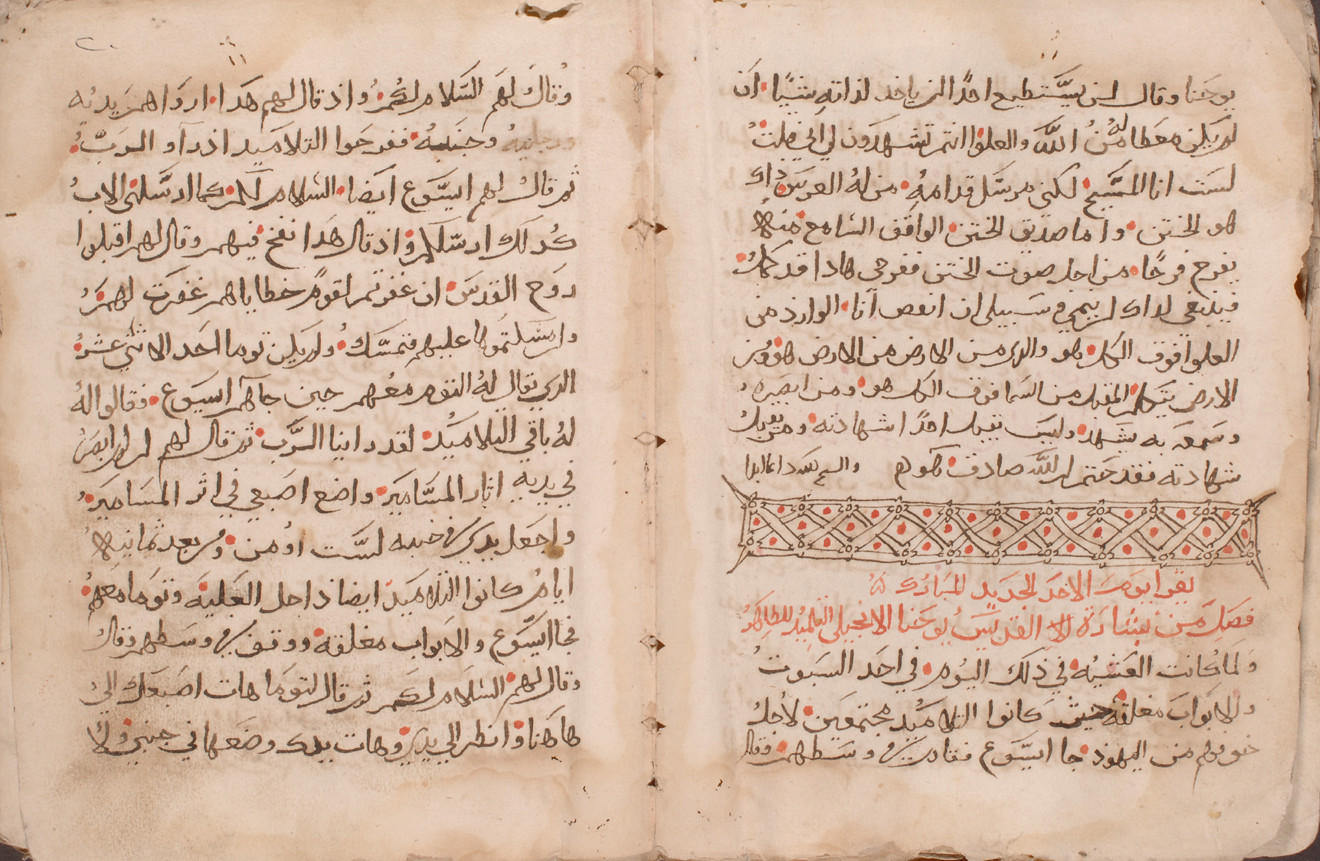 يوحنا وقال ليس يستطيع احدًا ان ياخد لذاته شيًا ان
لم يكن معطا له من الله والعلو انتم تشهدون لي اني قلت
لست انا المسيح لكني مرسل قدامه من له العروس داك
هو الختن واما صديق الختن الواقف السامع منه
يفرح فرحًا من اجل صوت الختن ففرحي هادا قد كمل
وينبغي لداك ان ينمي وسبيلي ان انقص انا الوارد من
العلو فوق الكل هو والدي من الارض من الارض هو ومن
الارض يتكلم المقبل من السما فوق الكل هو ومن ابصره
وسمعه به شهد وليس يقبل احدًا شهادته ومن يقبل
شهادته فقد ختم ان الله صادق هو
يقرا يوم الاحد الجديد المبارك
فصل من بشارة القديس يوحنا الانجيلي التلميد الطاهر
ولما كانت العشيه في ذلك اليوم في احد السبوت
والابواب مغلقه حيث كانوا التلاميد مجتمعين لاجل
خوفهم من اليهود جا ايسوع فقام في وسطهم وقال
وقال لهم السلام لكم واذ قال لهم هدا اراهم يديه
ورجليه وجنبه ففرحوا التلاميد اذ راو الرب
ثم قال لهم ايسوع ايضا السلام لكم كما ارسلني الاب
كدلك ارسلكم واذ قال هدا نفخ فيهم وقال لهم اقبلوا
روح القدس ان غفرتم لقوم خطاياهم غفرت لهم
وان مسكتموها عليهم فتمسك ولم يكن توما احد الاثني عشر
الدي يقال له التوم معهم حين جاهم ايسوع فقالوا له
له باقي التلاميد لقد راينا الرب ثم قال لهم ان لم ابصر
في يديه اثار المسامير واضع اصبعي في اثر المسامير
واجعل يدي في جنبه لست اومن ومن بعد ثمانيه
ايام كانوا التلاميد ايضا داخل العليه وتوما معهم
فجا ايسوع والابواب مغلقه ووقف في وسطهم وقال
وقال لهم السلام لكم ثم قال لتوما هات اصبعك الي
هاهنا وانظر الي يدي وهات يدك وضعها في جنبي ولا